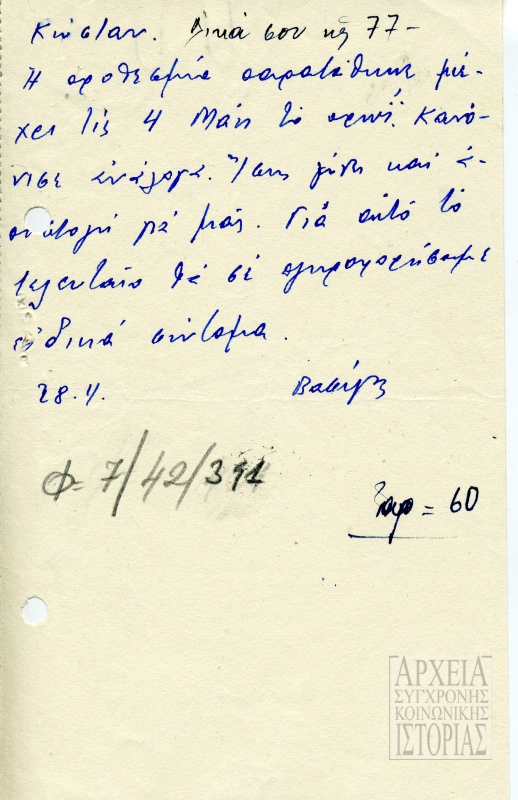 Κώσταν. Δικά σου Νο 77-
Η προθεσμία παρατάθηκε μέ-
χρι τίς 4 Μάη τό πρωί. Κανό-
νισε ἀνάλογα. Ἴσως γίνη καί
μέ μᾶς. Γιά αὐτό τό
τελευταῖο θά σέ πληροφορήσωμε
εἰδικά σύντομα.
28.4. Βασίλης
Φ= 7/42/391
= 60
ΑΡΧΕΙΑ
ΣΥΓΧΡΟΝΗΣ
ΚΟΙΝΩΝΙΚΗΣ
ΙΣΤΟΡΙΑΣ